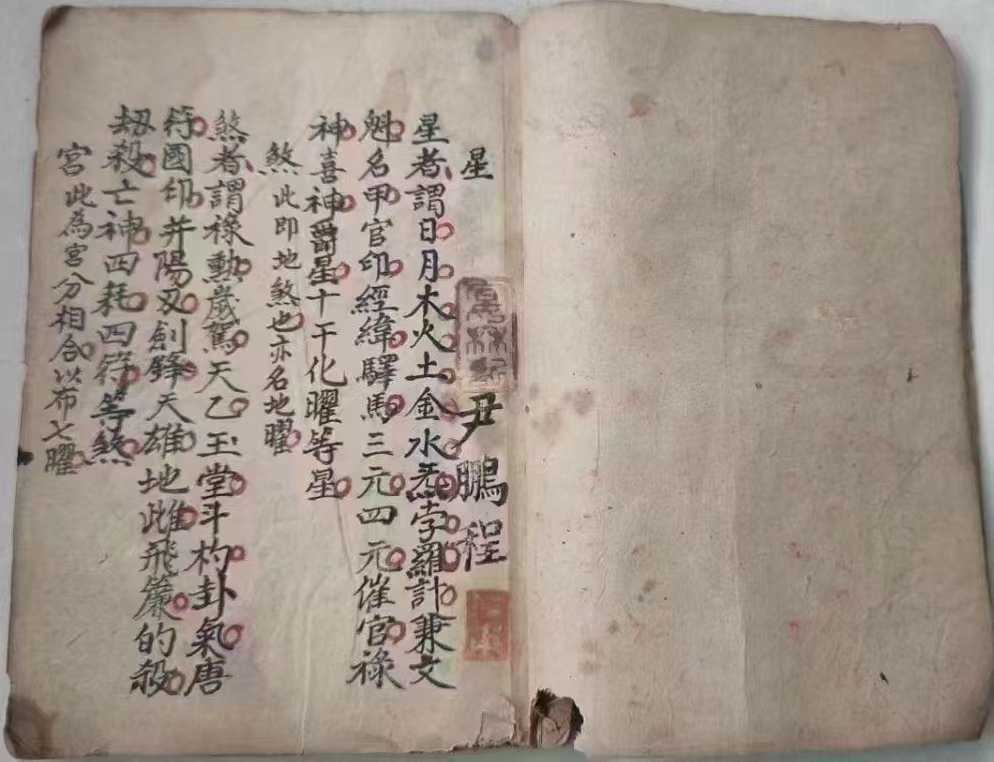 星
尹鵬程
星者謂日月木火土金水炁孛羅計兼文
魁名甲官印經緯驛馬三元四元催官祿
神喜神爵星十干化曜等星
煞此即地煞也亦名地曜
煞者謂祿勳歲駕天乙玉堂斗杓卦氣唐
符國印并陽刃劍鋒天雄地雌飛簾的殺
劫殺亡神四耗四符等煞
宮此為宮分相合以布七曜